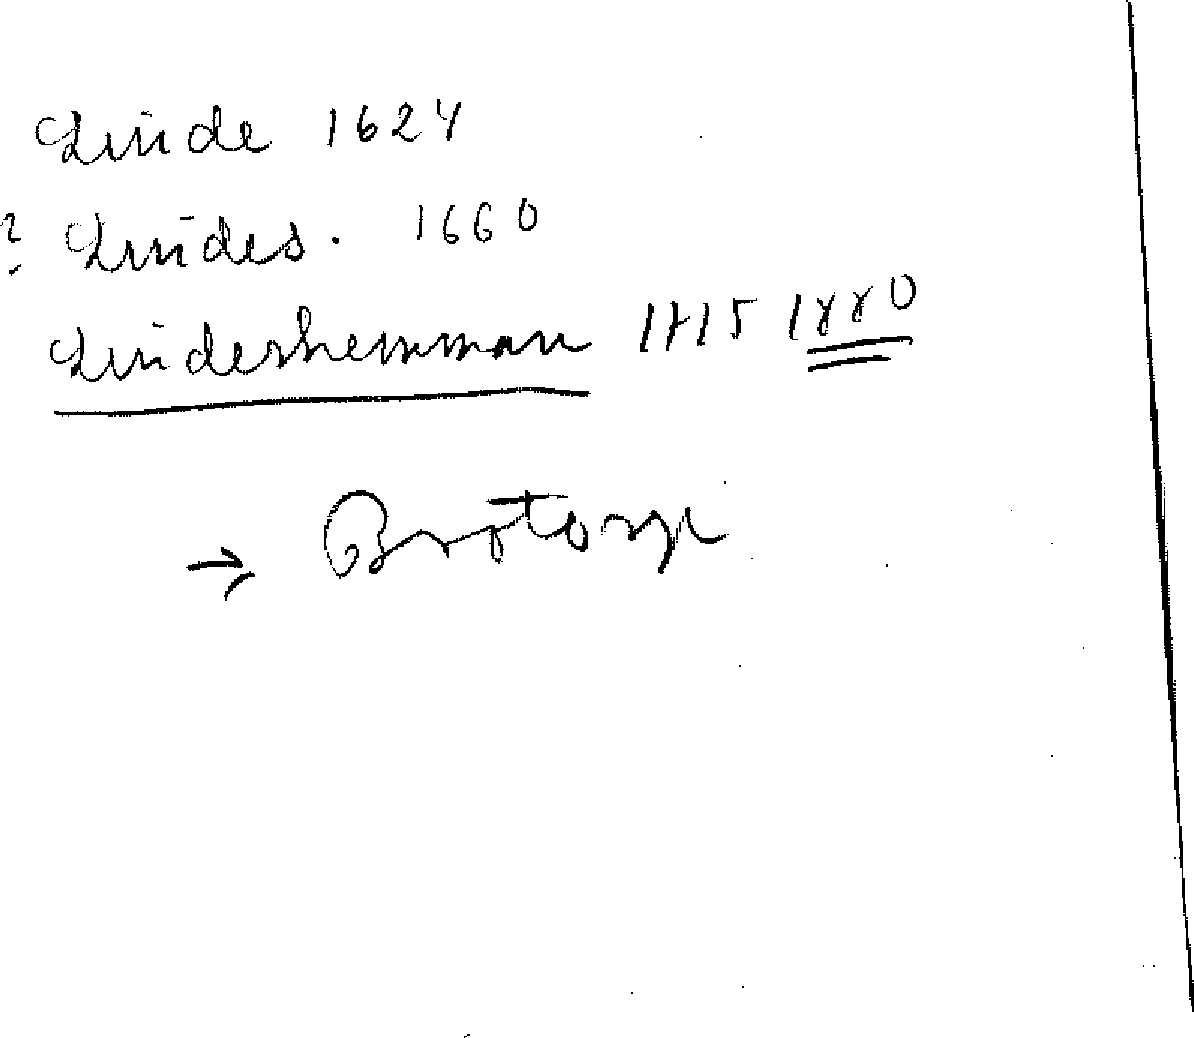 Linde 1624
? Lindes. 1660
Linderhemman 1715 1880
→ Brotorp